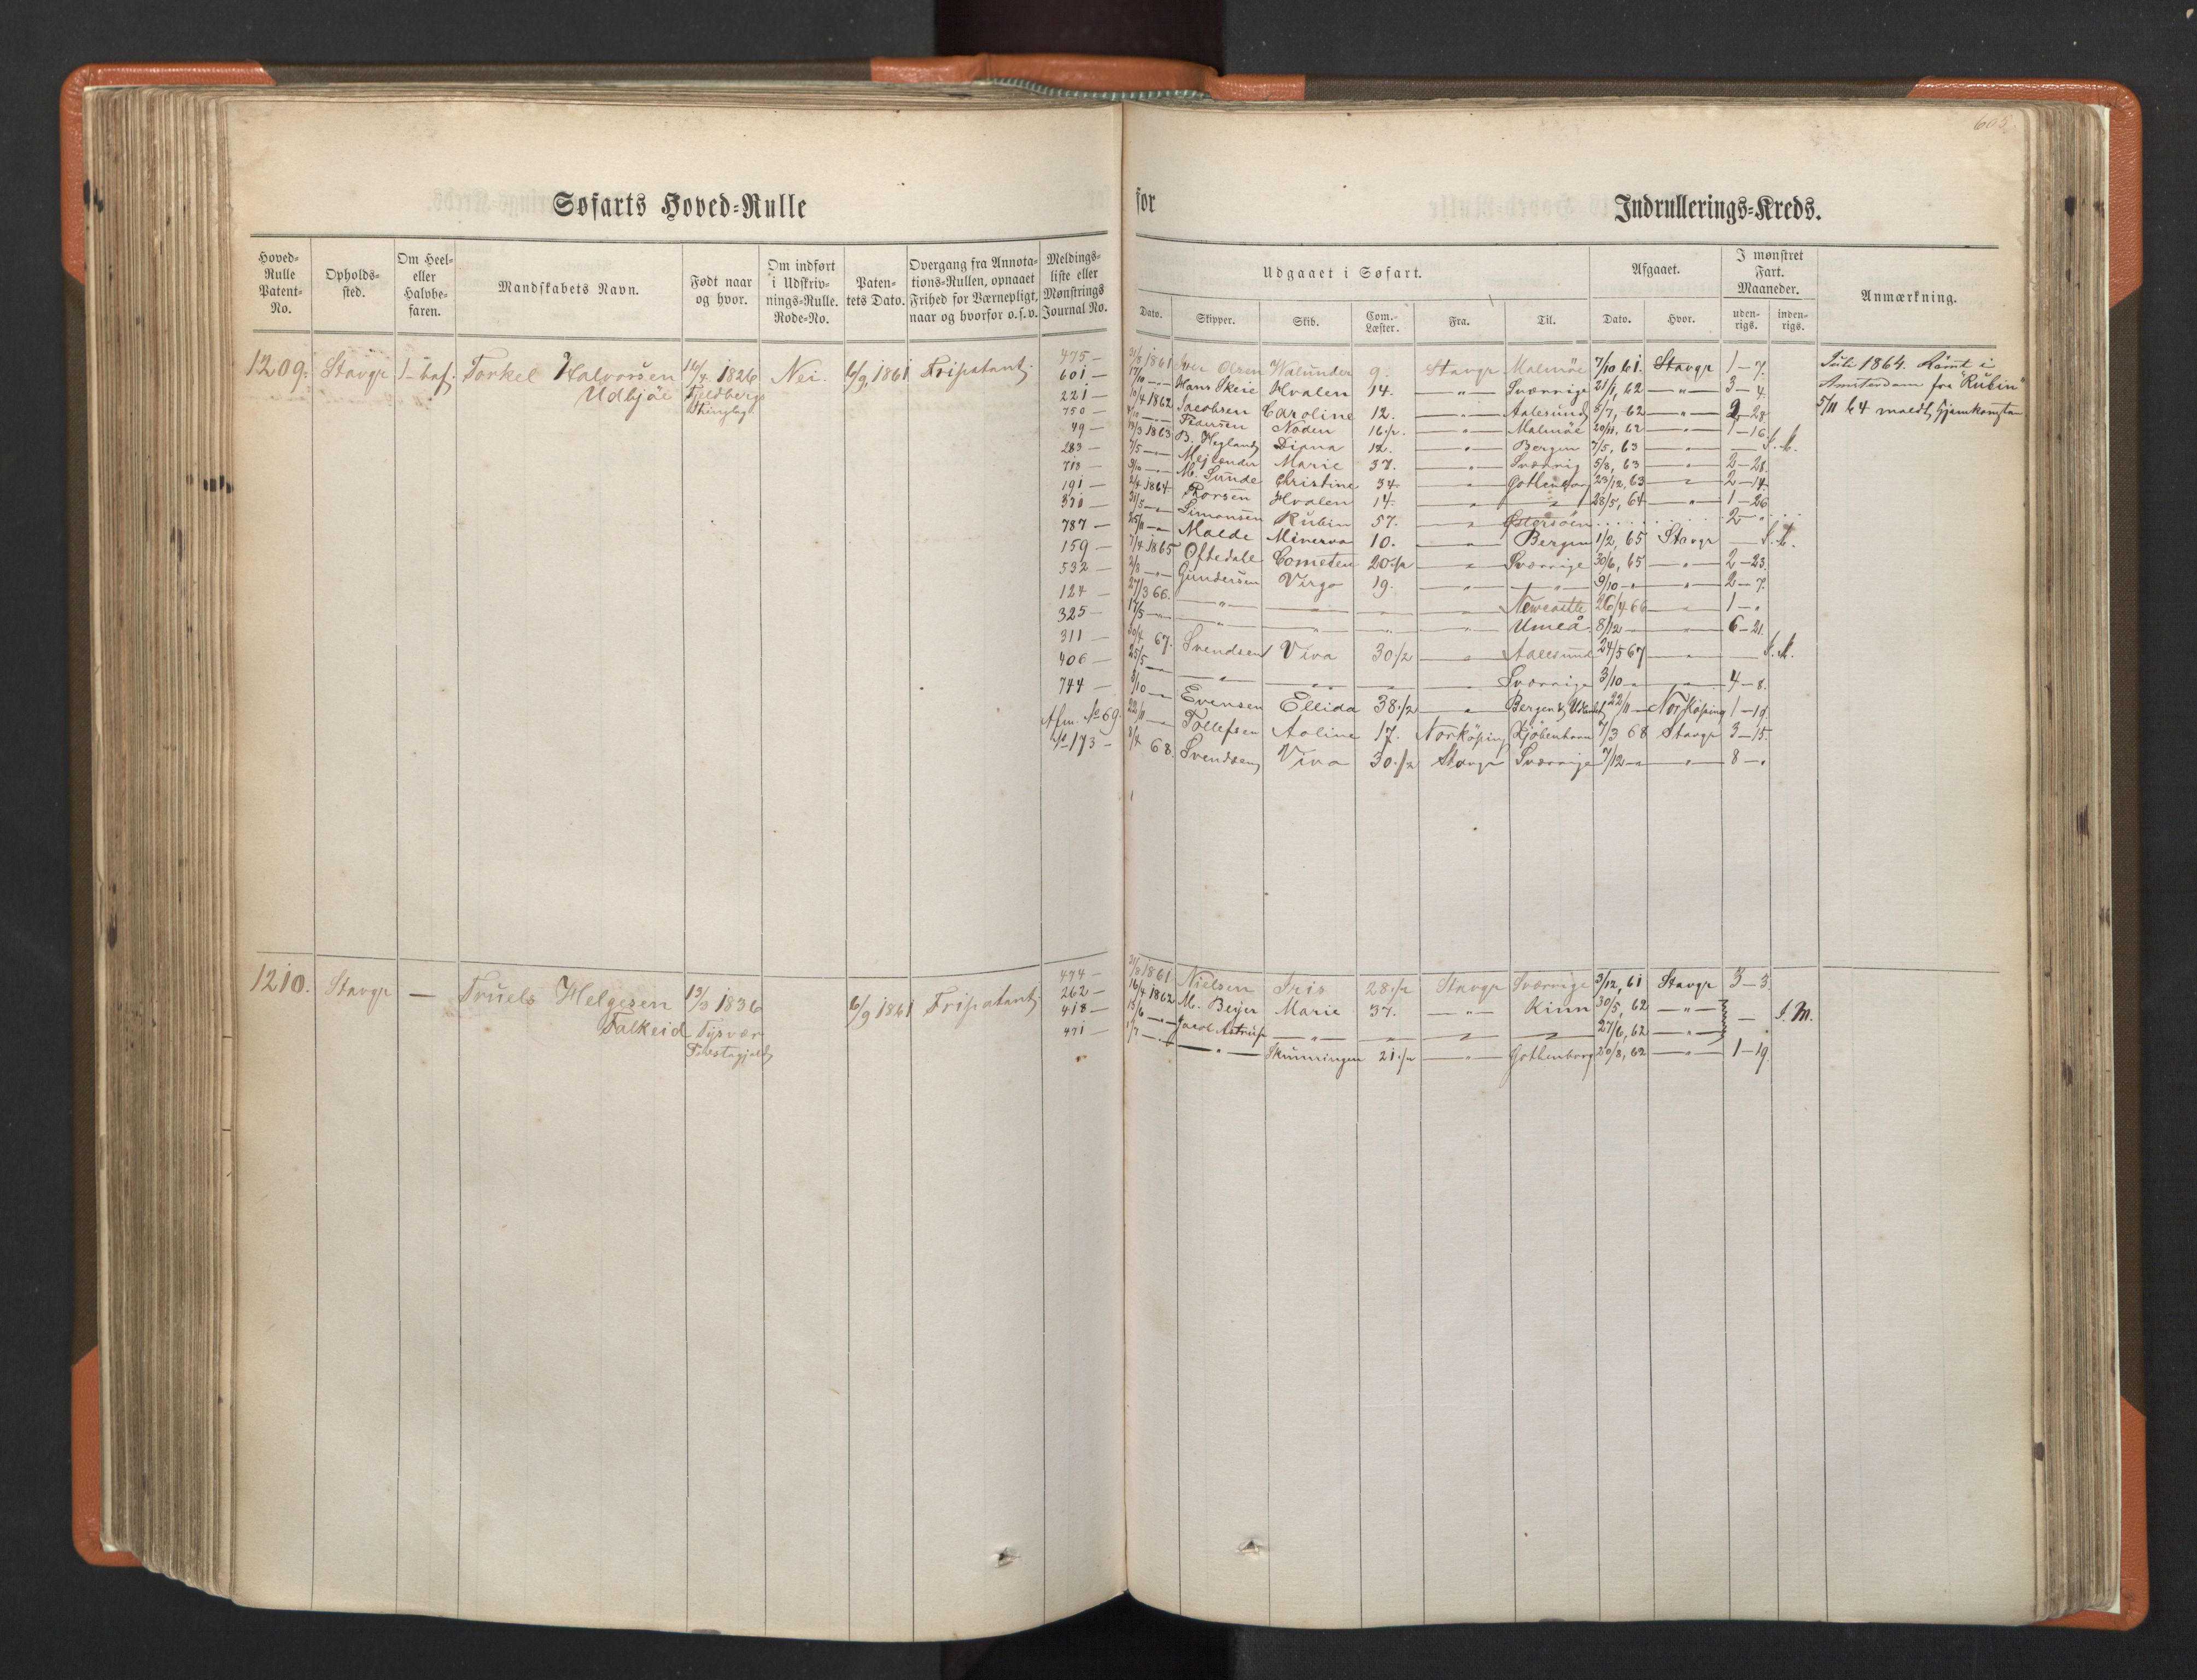 Søfarts Hoved-Rulle
Hoved-Rulle Patent-No.
Opholds-sted.
Om Heel- eller Halvbe-faren.
Mandskabets Navn.
Født naar og hvor.
Om indført i Udskriv-nings-Rulle. Rode-No.
Paten-tets Dato.
Overgang fra Annota-tions-Rullen, opnaaet Frihed for Værnepligt, naar og hvorfor o. s. v.
Meldings-liste eller Mønstrings Journal No.
1209. Stavgr 1-bef. Torkel Halvorsen 16/4 1826 Nei. 6/9 1861 Fripatent.
Udbjöe Fjeldberg
475 —
601 —
221 —
750 —
49 —
283 —
713 —
191 —
370 —
787 —
159 —
532 —
124 —
325 —
311 —
406 —
744 —
Afm. No 69.
No 173 —
1210. Stavgr — Truels Helgesen 13/3 1836 6/9 1861 Fripatent
Falkeid Tysvær
474 —
262 —
418 —
471 —
for Indrullerings-Kreds.
Udgaaet i Søfart.
Afgaaet.
I mønstret Fart. Maaneder.
Anmærkning.
Dato. Skipper. Skib. Com.-Læster. Fra. Til. Dato. Hvor. uden-rigs. inden-rigs.
31/8 1861 Iver Olsen Walunder 9. Stavgr Malmöe 7/10 61. Stavgr 1 — 7.
17/10 — Hans Skeie Hvalen 14. — " — Sværrige 21/1, 62 — " — 3 — 4.
10/4 1862 Jacobsen Caroline 12. — " — Aalesund 8/7, 62 — " — 2 — 28
Pedersen Noden 16 1/2. — " — Malmöe 20/11, 62 — " — 1 — 16
19/3 1863 B. Hegland Diana 12. — " — Bergen 7/5, 63 — " —
7/5 — Mejlænder Marie 37. — " — Sværrig 5/8, 63 — " — 2 — 28.
9/10 — M. Sunde Christine 34 — " — Gothenborg 23/12, 63 — " — 2 — 14
2/4 1864 Thorsen Hvalen 14. — " — " 28/5, 64 — " — 1 — 26
31/5 — Simonsen Rubin 57. — " — Østersöen 2 — "
25/11 — Malde Minerva 10. — " — Bergen 1/2, 65 Stavgr —
7/4 1865 Oftedahl Cometen 20 1/2 — " — Sværrige 30/6, 65 — " — 2 — 23.
2/8 — Gundersen Virgo 19. — " — 9/10 — " — 2 — 7.
27/3 66. — " — Newcastle 26/4 66 — " — 1 — "
17/5 — " — Umeå 8/12 — " — 6 — 21.
30/4 67. Svendsen Viva 30 1/2 — " — Aalesund 24/5 67 — " —
25/5 — " — Sværrige 3/10 — " — 4 — 8.
8/10 — Evensen Ellida 38 1/2 — " — Bergen & Udlandet 22/11 — Norköping 1 — 19.
22/11 — Tollefsen Aoline 17. Norköping Kjöbenhavn 7/3 68 Stavgr 3 — 15.
8/4 68. Svendsen Viva 30 1/2 Stavgr Sværrige 7/12 — " — 8 — "
Juli 1864. Römt i
Amsterdam fra "Rubin"
5/11 64 meldt hjemkommen
31/8 1861 Nielsen Iris 28 1/2 Stavgr Sværrige 3/12, 61 Stavgr 3 — 3.
16/4 1862 M. Beyer Marie 37. — " — Kinn 30/5, 62 — " —
13/6 — Jacob — " — 27/6, 62 — " — I. M.
1/7 — " — 21 1/2 — " — Gothenborg 20/8, 62 — " — 1 — 19.